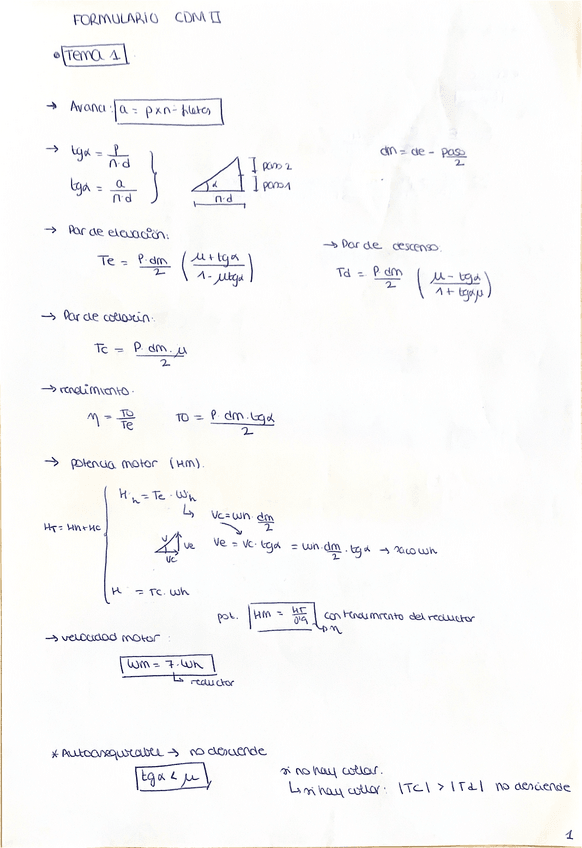 FORMULARIO CDM II
• Tema 1
→ Avance: a = p x nº filetes
→ tgα = p / π·d
dm = de - paso/2
tgα = a / π·d
paso 2
paso 1
α
π·d
→ Par de elevación:
Te = P·dm/2 ( μ + tgα / 1 - μtgα )
→ Par de descenso.
Td = P·dm/2 ( μ - tgα / 1 + tgαμ )
→ Par de collarín:
Tc = P·dm·μ / 2
→ rendimiento.
η = T0/Te   T0 = P·dm·tgα / 2
→ potencia motor (Hm).
Hh = Te · Wh
HT = Hh + Hc
↳ Vc = wh · dm/2
V Ve Vc
Ve = Vc · tgα = wh · dm/2 · tgα → saco wh
H = Tc · wh
pot. Hm = HT/0'9 con rendimiento del reductor
↳ η
→ velocidad motor:
Wm = 7 · Wh
↳ reductor
* Autoasegurable → no desciende
tgα < μ
si no hay collar.
↳ si hay collar: |Tc| > |Td| no desciende
1